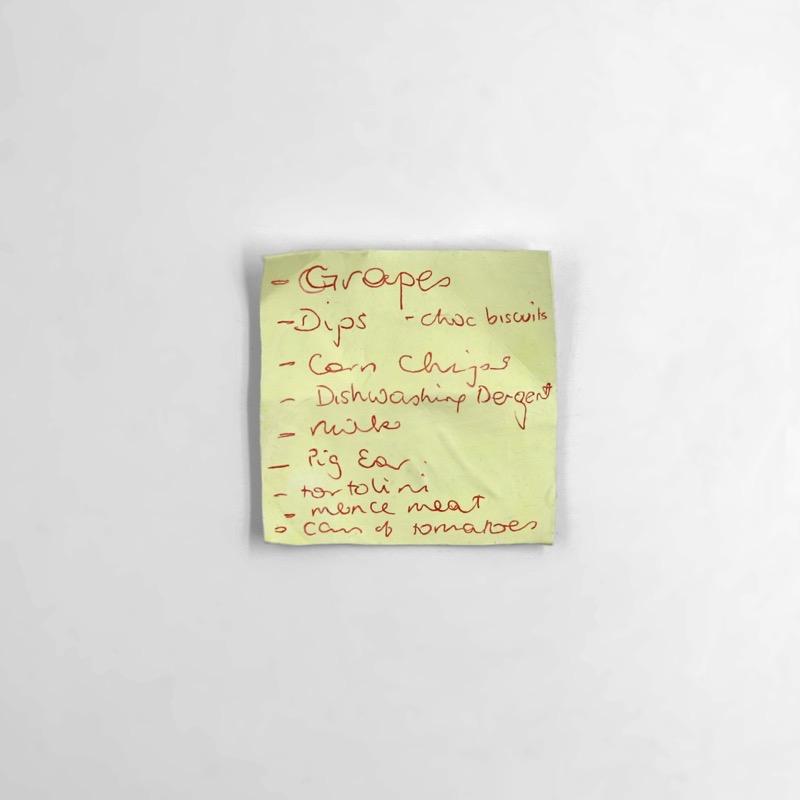 - Grapes
- Dips - choc biscuits
- Corn Chips
- Dishwashing Dergent
- Milk
- Pig Ear.
- tortolini
- mence meat
o can of tomatoes